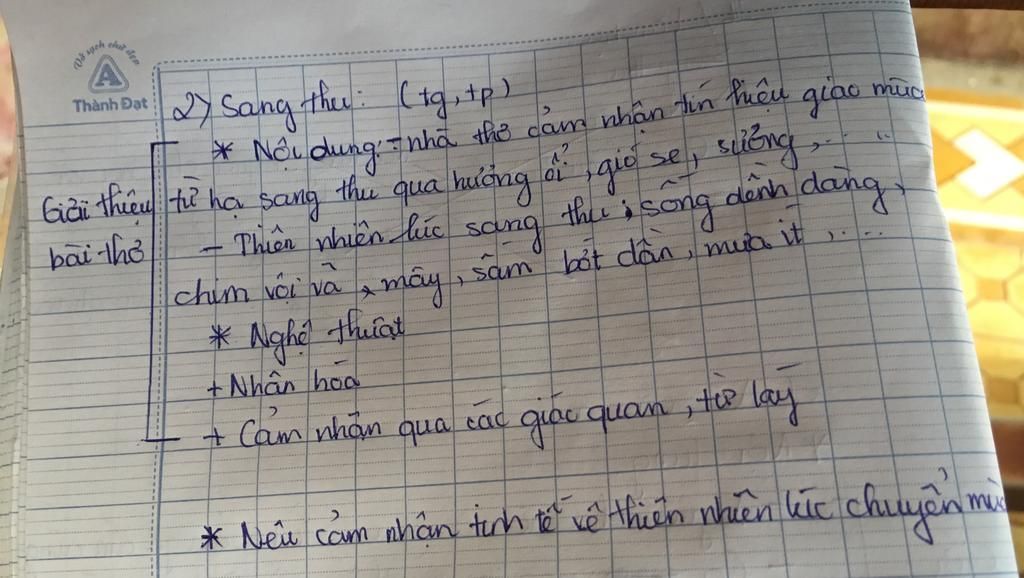 Vở sạch chữ đẹp
A
Thành Đạt
2) Sang thu: (tg, tp)
* Nội dung: - nhà thơ cảm nhận tín hiệu giao mùa
từ hạ sang thu qua hương ổi, gió se, sương, .. ..
- Thiên nhiên lúc sang thu: sông dềnh dàng,
chim vội vã, mây, sấm bớt dần, mưa ít, ....
* Nghệ thuật
+ Nhân hóa
+ Cảm nhận qua các giác quan, từ láy
Giới thiệu
bài thơ
* Nêu cảm nhận tinh tế về thiên nhiên lúc chuyển mùa